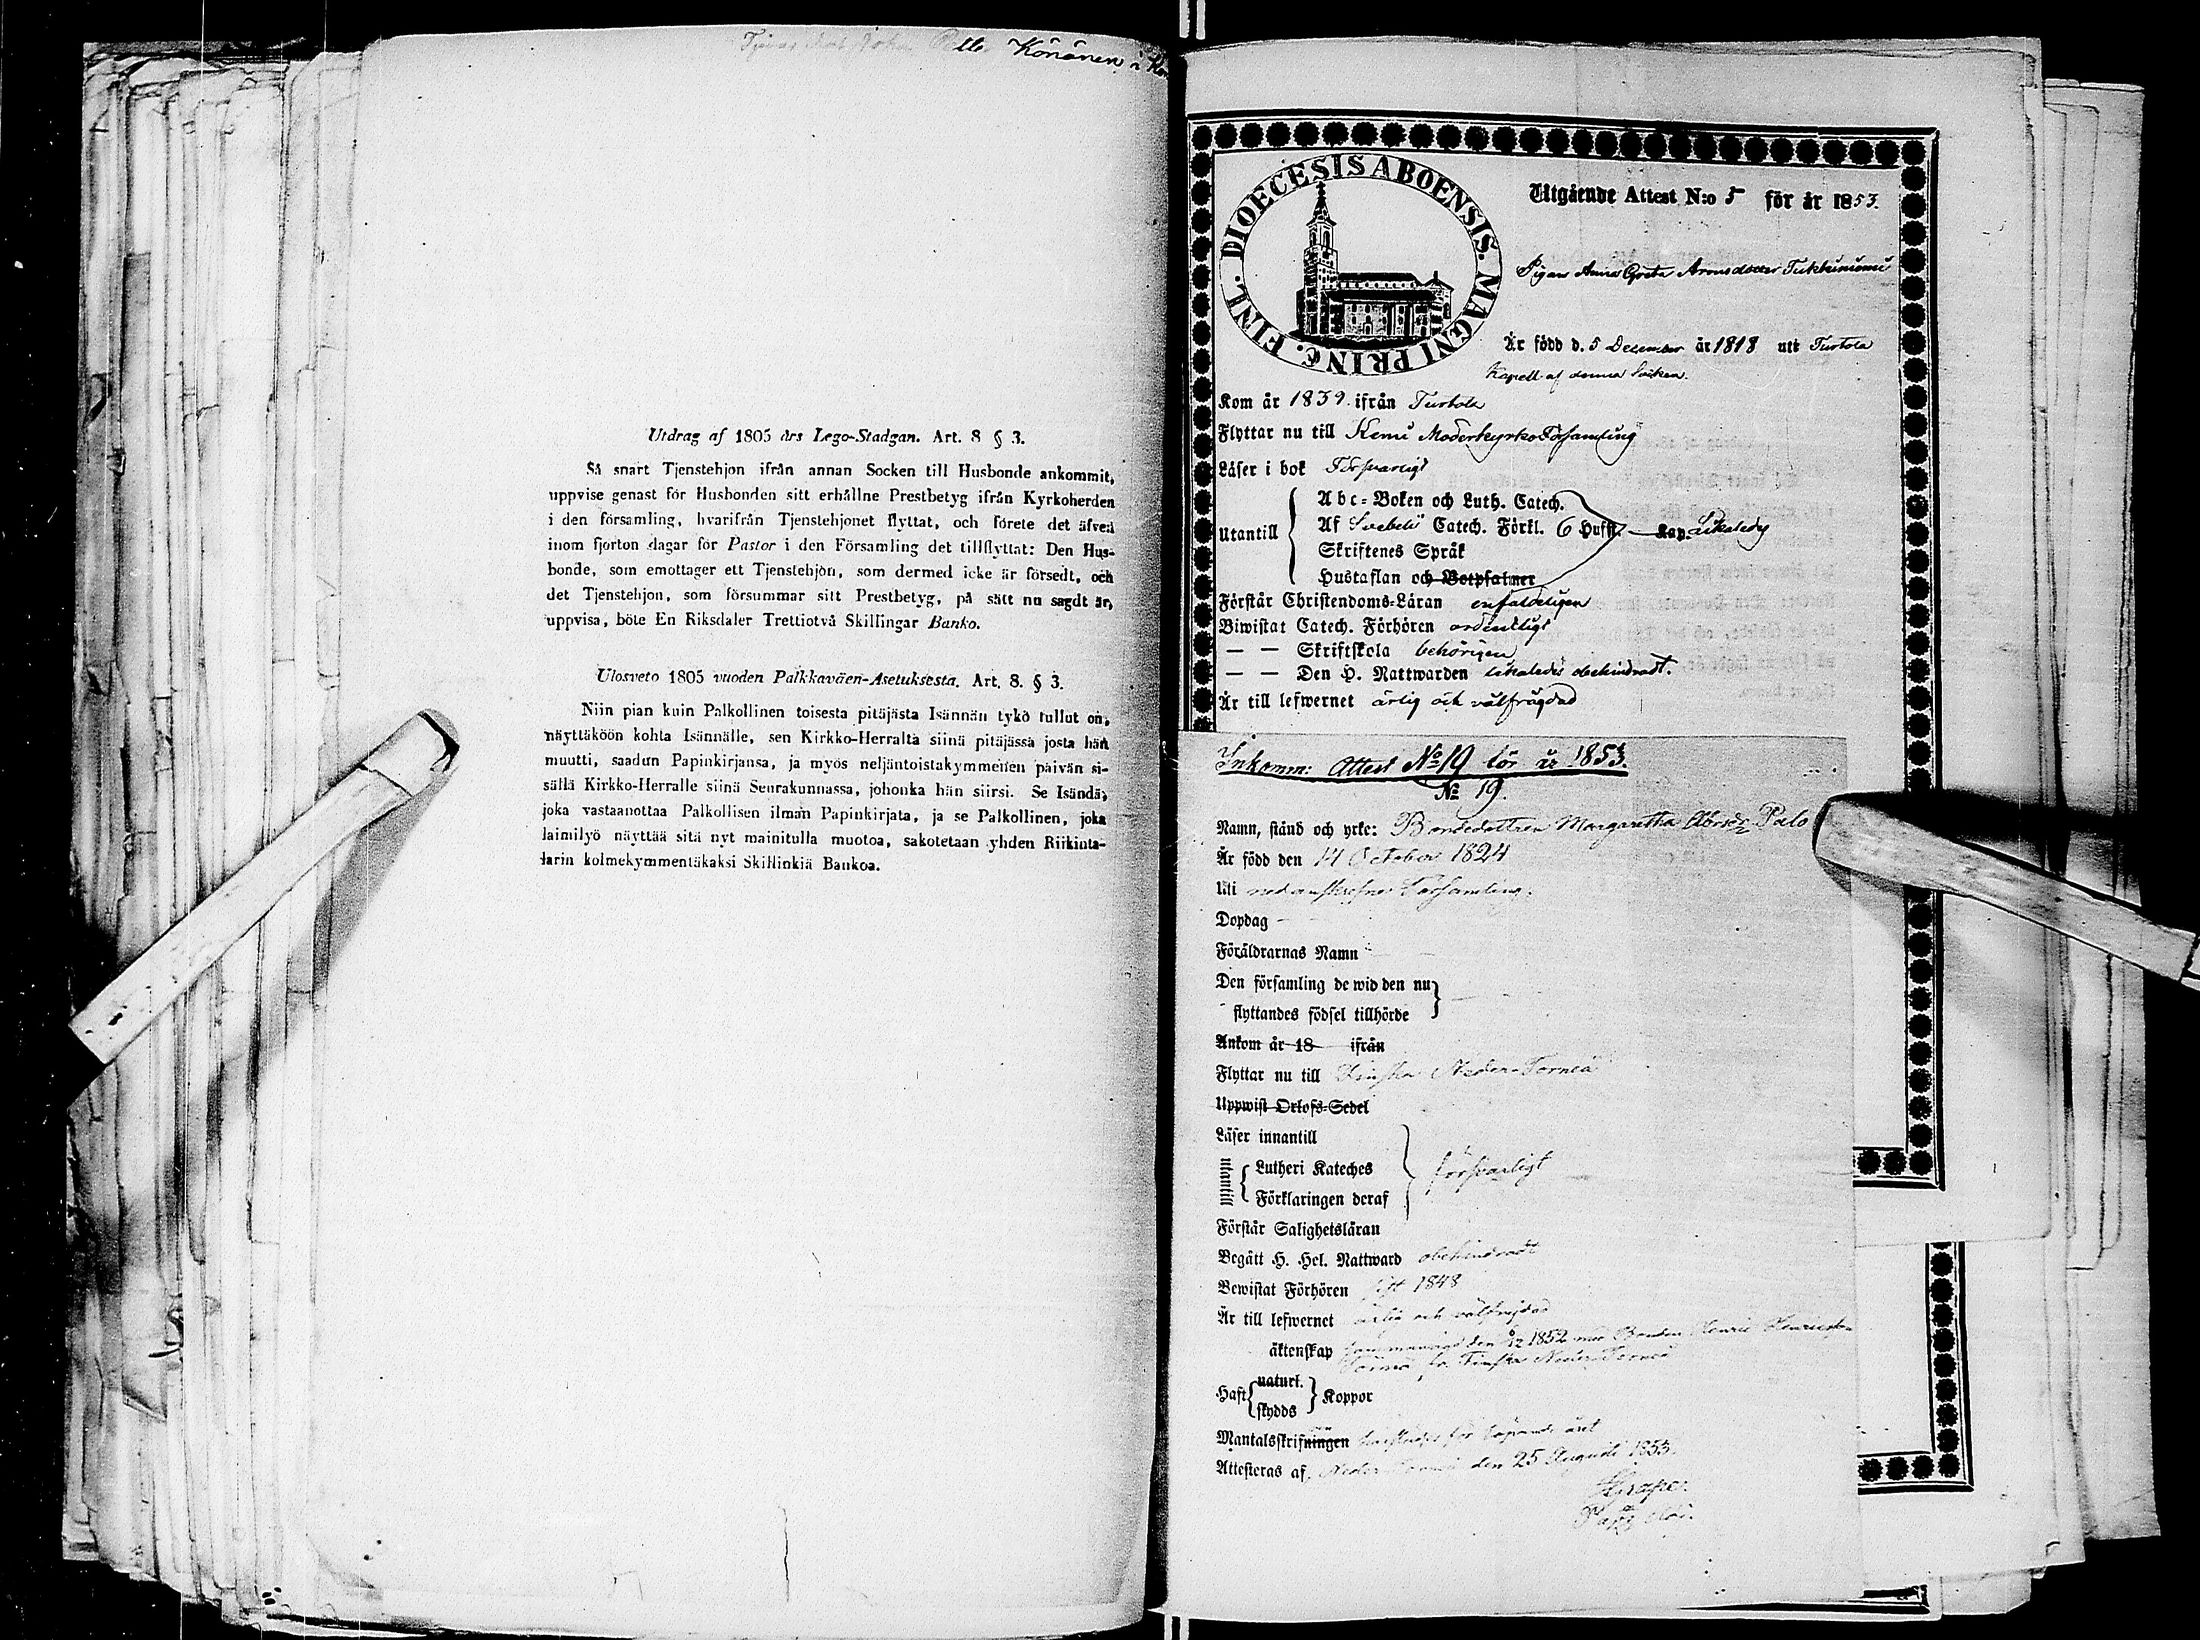 Pelle Könönen i
Utdrag af 1805 års Lego-Stadgan. Art. 8 § 3.
Så snart Tjenstehjon ifrån annan Socken till Husbonde ankommit,
uppvise genast för Husbonden sitt erhållne Prestbetyg ifrån Kyrkoherden
i den församling, hvarifrån Tjenstehjonet flyttat, och förete det äfven
inom fjorton dagar för Pastor i den Församling det tillflyttat: Den Hus-
bonde, som emottager ett Tjenstehjon, som dermed icke är försedt, och
det Tjenstehjon, som försummar sitt Prestbetyg, på sätt nu sagdt är,
uppvisa, böte En Riksdaler Trettiotvå Skillingar Banko.
Ulosveto 1805 vuoden Palkkaväen-Asetuksesta. Art. 8. § 3.
Niin pian kuin Palkollinen toisesta pitäjästä Isännän tykö tullut on,
näyttäköön kohta Isännälle, sen Kirkko-Herralta siinä pitäjässä josta hän
muutti, saadun Papinkirjansa, ja myös neljäntoistakymmenen päivän si-
sällä Kirkko-Herralle siinä Seurakunnassa, johonka hän siirsi. Se Isändä,
joka vastaanottaa Palkollisen ilman Papinkirjata, ja se Palkollinen, joka
laimilyö näyttää sitä nyt mainitulla muotoa, sakotetaan yhden Riikinta-
larin kolmekymmentäkaksi Skillinkiä Bankoa.
DIOECESIS ABOENSIS. MAGNI PRINC. FINL.
Utgående Attest N:o 5 för år 1853.
Pigan Anna Greta Aronsdotter
Är född d. 5 December år 1818 uti Turtola
Kapell af denna Socken.
Kom år 1839. ifrån Turtola
Flyttar nu till Kemi Moderkyrko Församling
Läser i bok Försvarligt
Utantill
Abc-Boken och Luth. Catech.
Af Svebelii Catech. Förkl. 6 Hufft. Kap. likaledes
Skriftenes Språk
Hustaflan och Botpsalmer
Förstår Christendoms-Läran enfaldeligen
Biwistat Catech. Förhören ordentligt
— — Skriftskola behörigen
— — Den H. Nattwarden likaledes obehindradt.
Är till lefwernet ärlig och välfrägdad
Inkomm: Attest No 19 för år 1853.
No 19.
Namn, stånd och yrke: Bondedottren Margaretha Palo
Är född den 14 October 1824
Uti nedanskrefne Församling.
Dopdag -
Föräldrarnas Namn -
Den församling de wid den nu
flyttandes födsel tillhörde
Ankom år 18 ifrån
Flyttar nu till Finska Neder-Torneå
Uppwist Orlofs-Sedel
Läser innantill
utantill
Lutheri Kateches
Förklaringen deraf
försvarligt
Förstår Salighetsläran
Begått H. Hel. Nattward obehindradt
Bewistat Förhören sist 1848
Är till lefwernet ärlig och välfrejdad
äktenskap 1852 med Bonden Henric Henricsson
fr. Finska Neder-Torneå
Haft
naturl.
skydds
Koppor
Mantalsskrifningen för löpande året
Attesteras af, Neder-Torneå den 25 Augusti 1853.